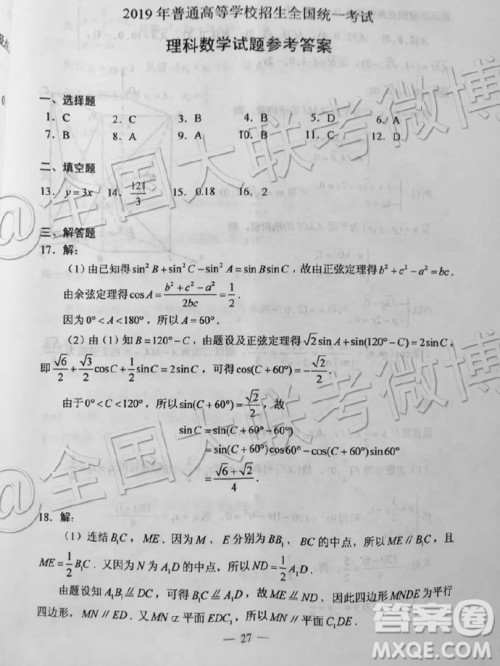 2019年普通高等学校招生全国统一考试
理科数学试题参考答案
一、选择题
1. C 2. C 3. B 4. B 5. D 6. A
7. B 8. A 9. A 10. B 11. C 12. D
二、填空题
13. y=3x 14. 121/3 15. 0.18 16. 2
三、解答题
17. 解:
(1) 由已知得 sin²B+sin²C−sin²A=sinBsinC, 故由正弦定理得 b²+c²−a²=bc.
由余弦定理得 cosA=(b²+c²−a²)/2bc=1/2.
因为 0°<A<180°, 所以 A=60°.
(2) 由(1)知 B=120°−C, 由题设及正弦定理得 √2sinA+sin(120°−C)=2sinC,
即 √6/2+√3/2cosC+1/2sinC=2sinC, 可得 cos(C+60°)=−√2/2.
由于 0°<C<120°, 所以 sin(C+60°)=√2/2, 故
sinC=sin(C+60°−60°)
=sin(C+60°)cos60°−cos(C+60°)sin60°
=(√6+√2)/4.
18. 解:
(1) 连结 B₁C, ME. 因为 M, E 分别为 BB₁, BC 的中点, 所以 ME∥B₁C, 且
ME=1/2B₁C. 又因为 N 为 A₁D 的中点, 所以 ND=1/2A₁D.
由题设知 A₁B₁∥DC, 可得 B₁C∥A₁D, 故 ME∥ND, 因此四边形 MNDE 为平行
四边形, MN∥ED. 又 MN⊄平面 EDC₁, 所以 MN∥平面 C₁DE.
— 27 —
@全国大联考微博
@全国大联考微博
答案圈
MXQE.COM